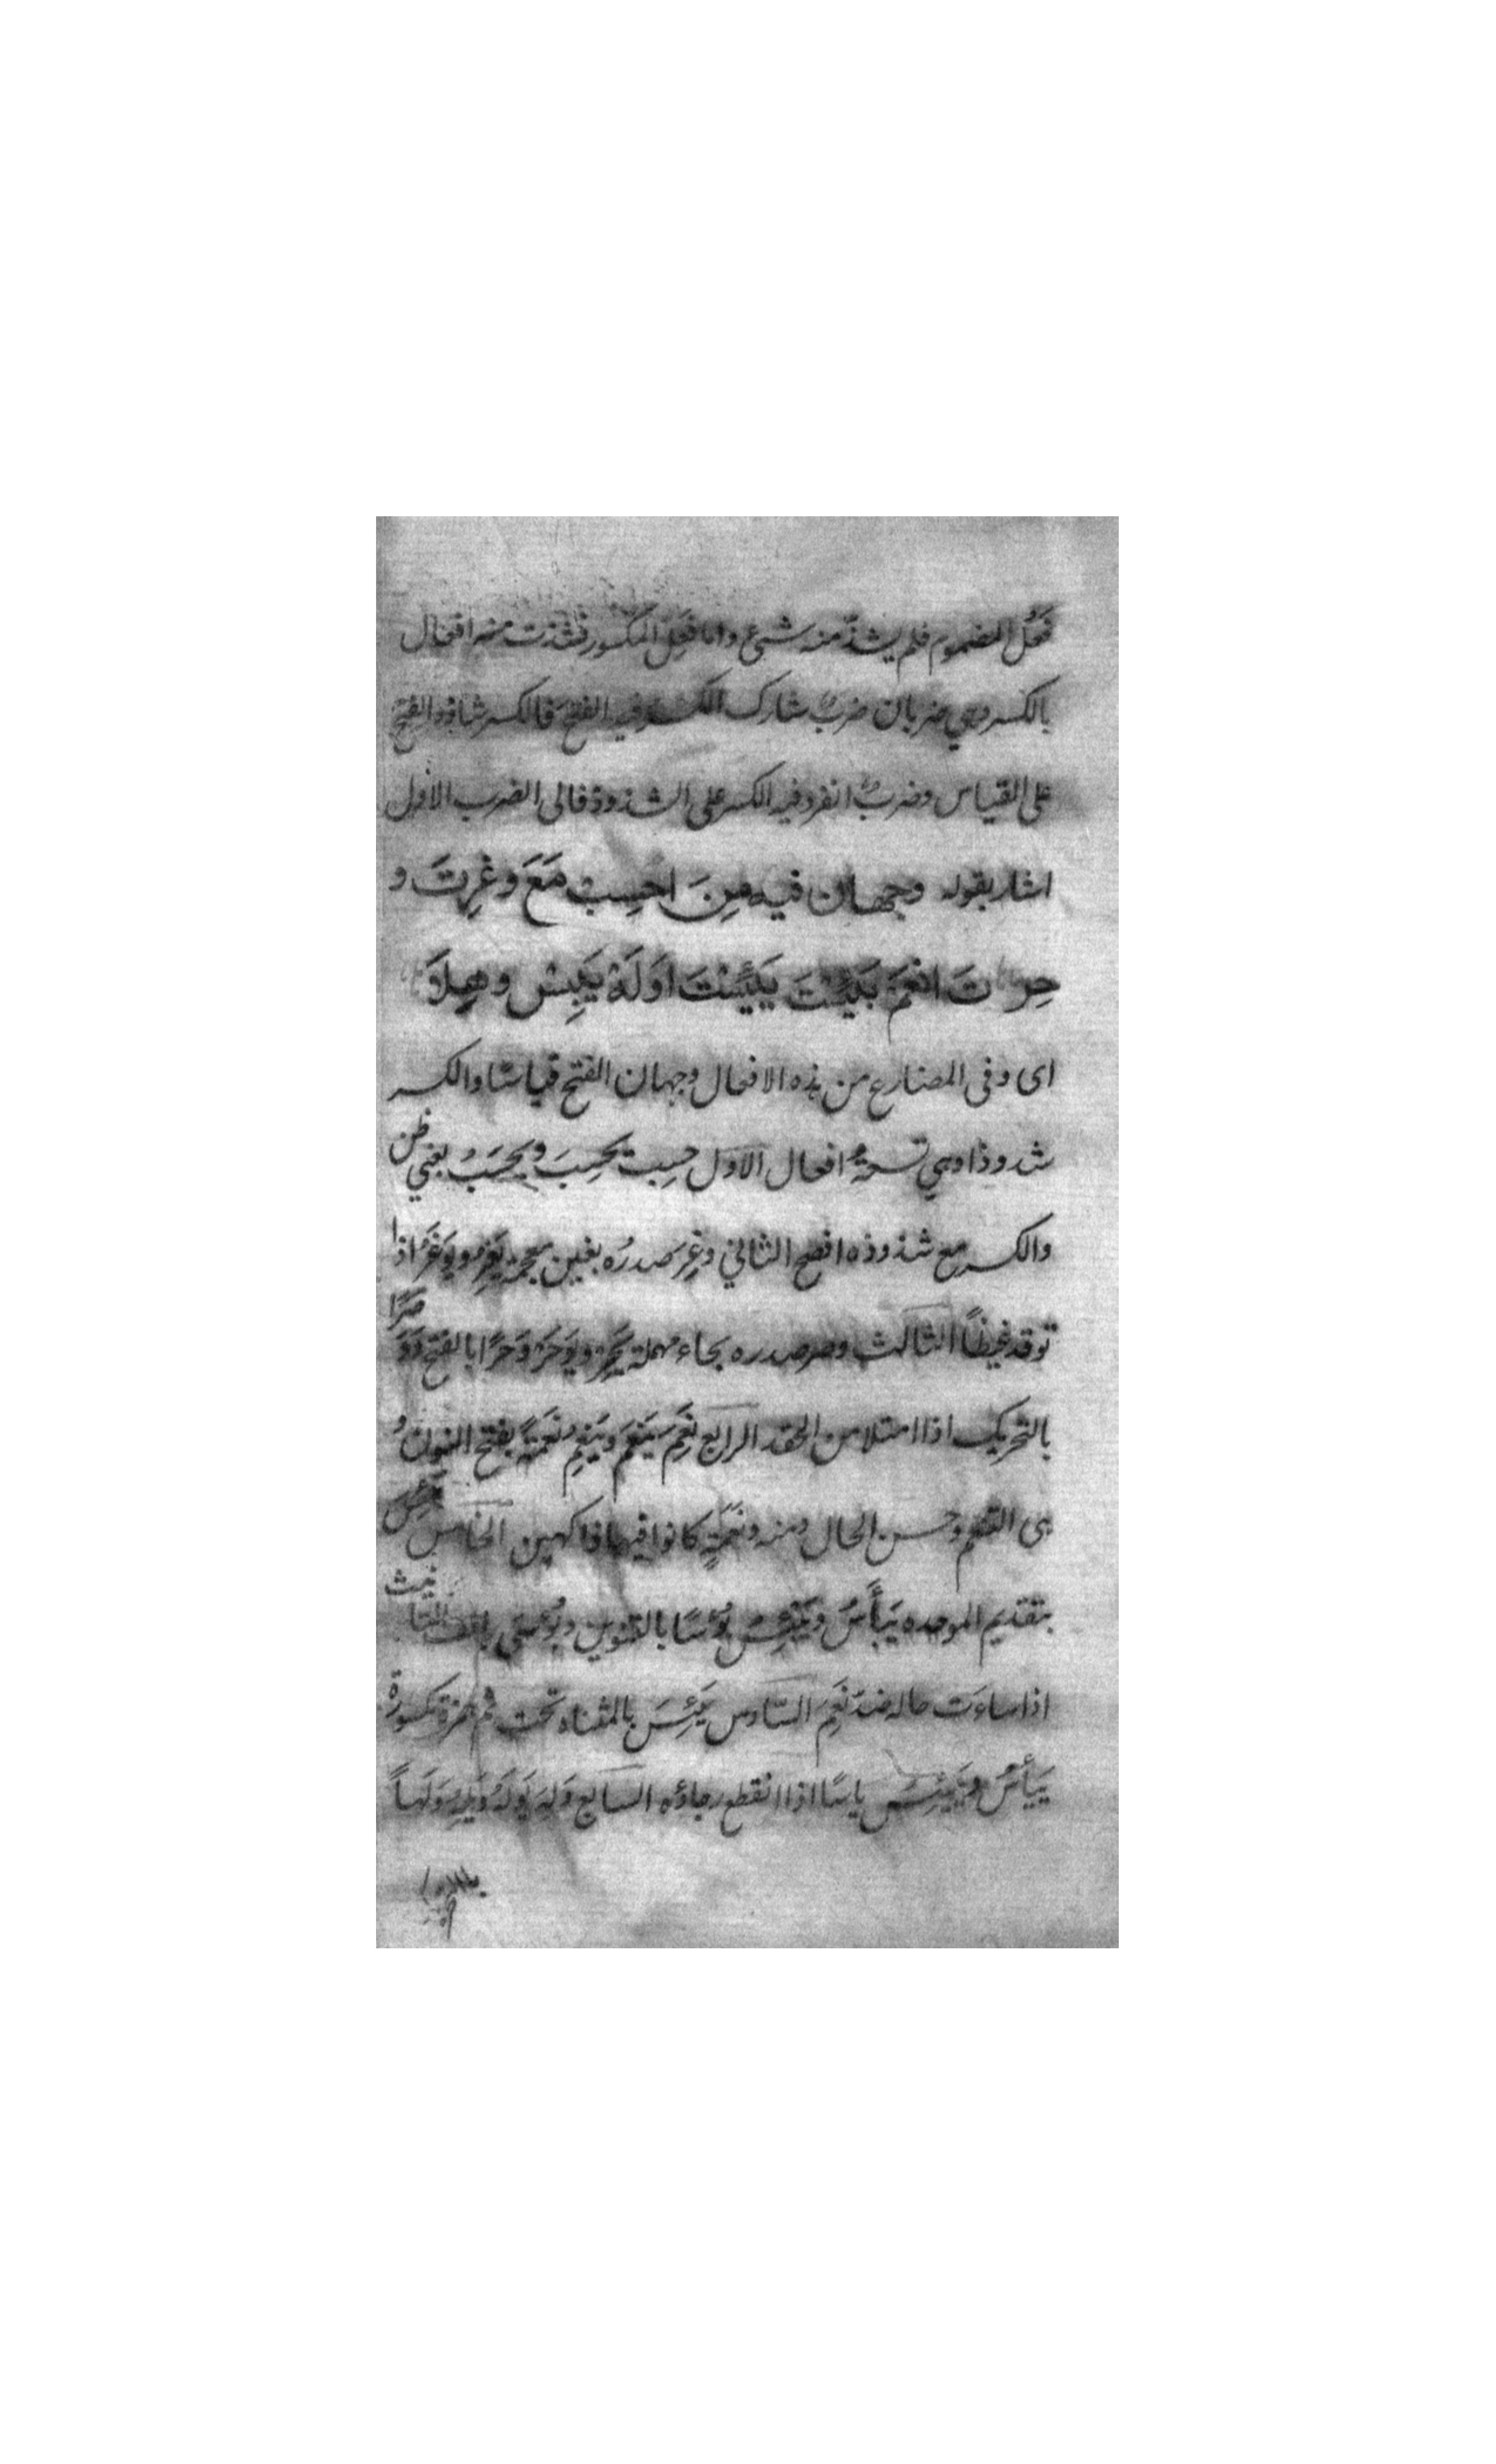 فَعُلَ المضموم فلم يشذّ منه شىء واما فَعِلَ المكسور فشذت منه افعال
بالكسر وهي ضربان ضربٌ شارك الكسر فيه الفتح فالكسر شاذ والفتح
على القياس وضربٌ انفرد فيه الكسر على الشذوذ فالى الضرب الاول
اشار بقوله وجهان فيه مِنَ احْسِبْ مَعَ وَغِرتَ و
حِرْتَ انْعَمْ بَئِسْتَ يَئِسْتَ اوَلَهْ يَبِسْ وهِلَا
اى وفى المضارع من هذه الافعال وجهان الفتح قياسًا والكسر
شذوذا وهي تسعةُ افعال الاول حسِبت يحسِبَ ويحسَبُ بمعني ظن
والكسر مع شذوذه افصح الثاني وغِرَ صدرُه بغين معجمة يَغِرُ ويَوغَرُ اذا
توقد غيظًا الثالث وحر صدره بحاء مهملة يَحِرُ ويَوحَرُ وَحْرًا بالفتح وَوَحَرًا
بالتحريك اذا امتلا من الحقد الرابع نَعِمَ يَنعَمُ ويَنعِمُ نَعمَةً بفتح النون و
هى التنعم وحسن الحال ومنه ونَعمَةٍ كانوا فيها فاكهين الخامس بَئِسَ
بتقديم الموحده يَبأَسُ ويَبئِسُ بُؤسًا بالتنوين وبُؤسَى بالف التانيث
اذا ساءت حاله ضدّ نَعِمَ السّادس يَئِسَ بالمثناه تحت ثم همزة مكسورة
يَيأَسُ ويَيئِسُ ياسًا اذا انقطع رجاؤه السابع وَلِهَ يَولَهُ ويَلِهُ وَلَهاً